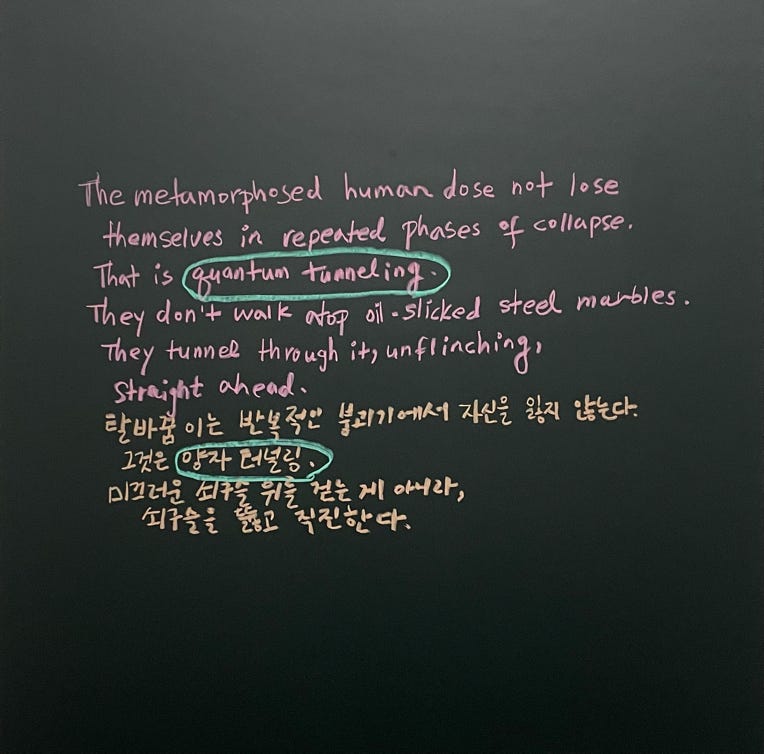 The metamorphosed human dose not lose
themselves in repeated phases of collapse.
That is quantum tunneling.
They don't walk atop oil-slicked steel marbles.
They tunnel through it, unflinching,
straight ahead.
탈바꿈 이는 반복적인 붕괴기에서 자신을 잃지 않는다.
그것은 양자 터널링.
미끄러운 쇠구슬 위를 걷는 게 아니라,
쇠구슬을 뚫고 직진한다.